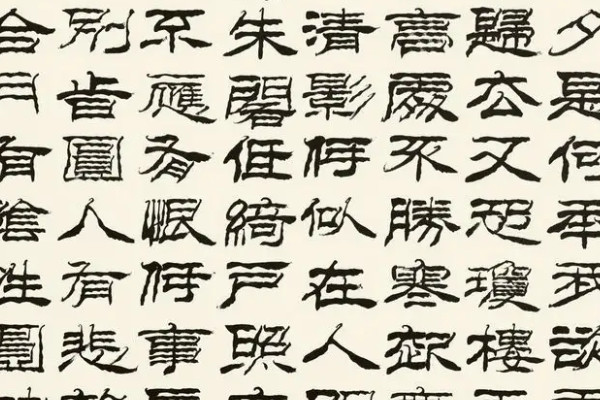 夕是何年我欲
歸去又恐瓊樓
高處不勝寒起
清影何似在人
朱閣低綺戶照
不應有恨何事
別旹圓人有悲
合月有陰晴圓